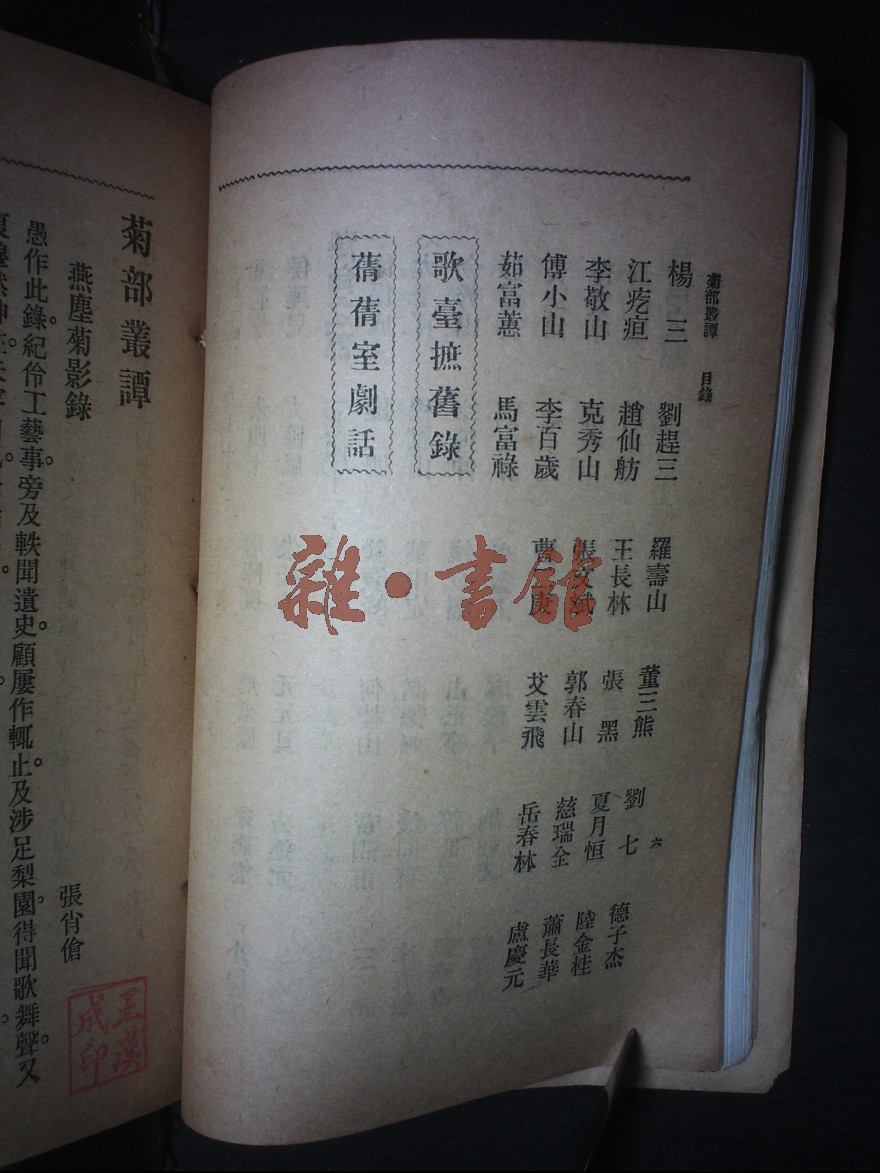 菊部叢譚　目錄
楊　三　劉趕三　羅壽山　董三熊　劉　七　德子杰
江疙疸　趙仙舫　王長林　張　黑　夏月恒　陸金桂
李敬山　克秀山　張文斌　郭春山　慈瑞全　蕭長華
傅小山　李百歲　曹二庚　艾雲飛　岳春林　盧慶元
茹富蕙　馬富祿
歌臺摭舊錄
蒨蒨室劇話
六
雜·書館
菊部叢譚
燕塵菊影錄
張肖傖
愚作此錄。紀伶工藝事。旁及軼聞遺史。顧屢作輒止。及涉足梨園。得聞歌舞聲。又
王漢成印